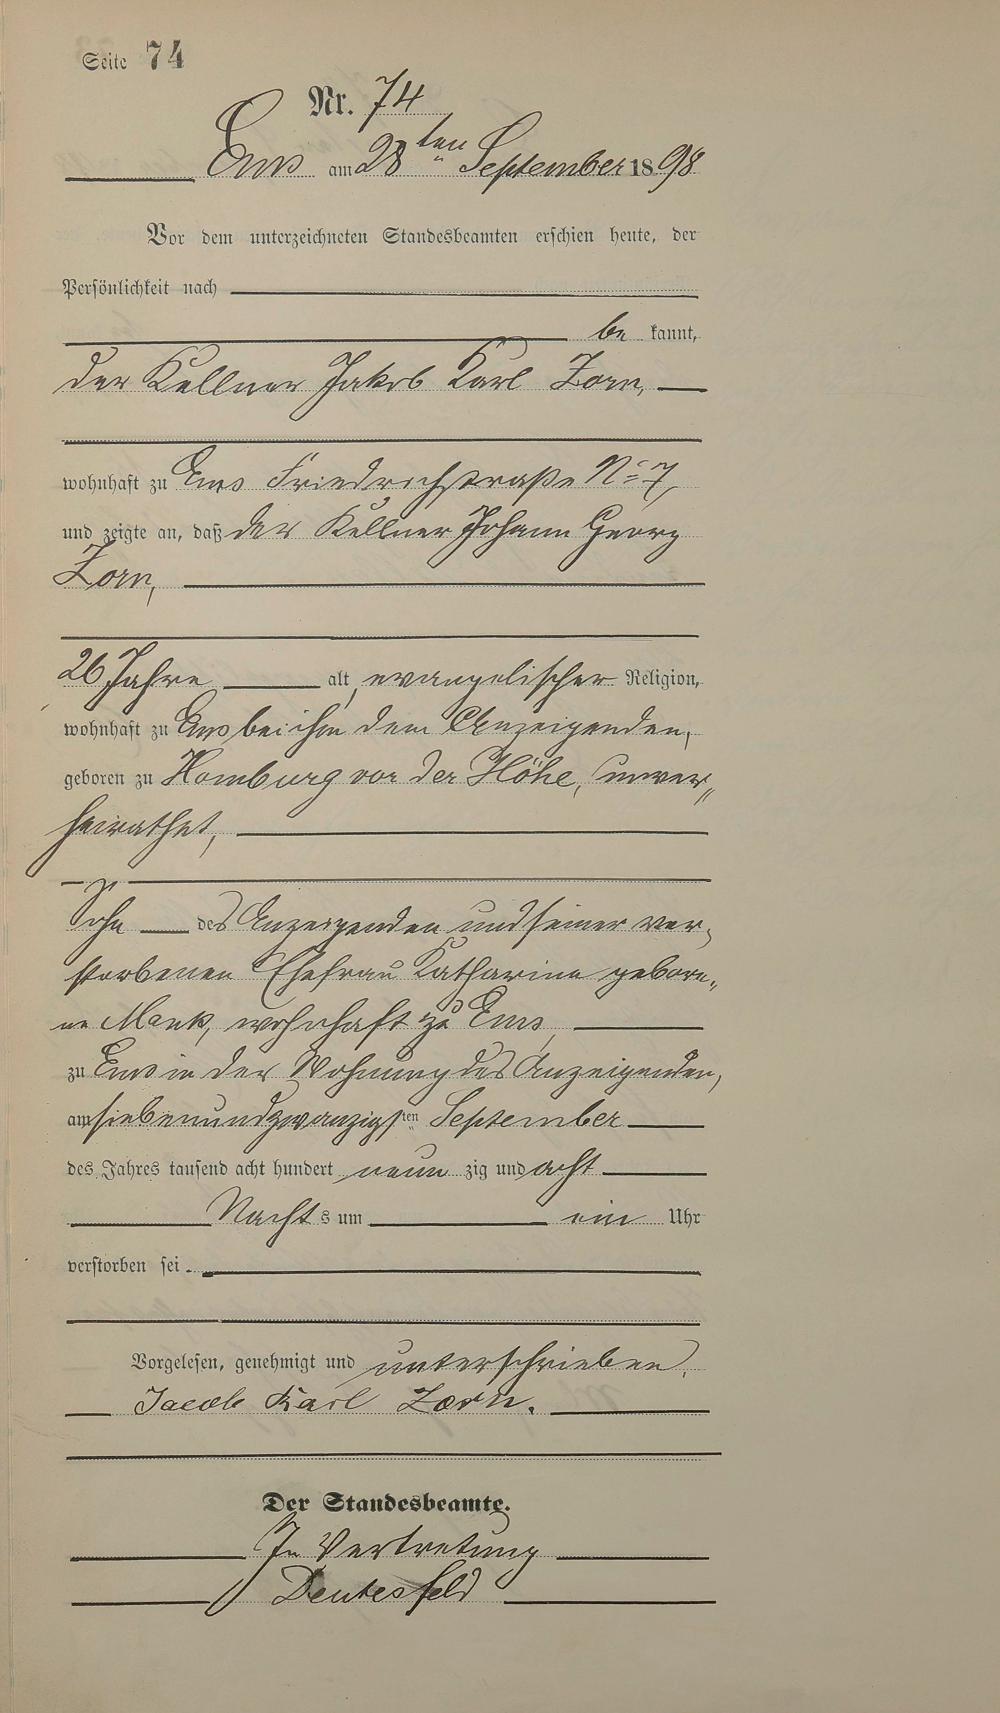 Seite 74
Nr. 74
Ems am 28ten September 1898
Vor dem unterzeichneten Standesbeamten erschien heute, der
Persönlichkeit nach
be kannt,
der Kellner Jakob Karl Zorn,
wohnhaft zu Ems Friedrichstraße No 7,
und zeigte an, daß der Kellner Johann Georg
Zorn,
26 Jahre alt, evangelischer Religion,
wohnhaft zu Ems bei ihm dem Anzeigenden,
geboren zu Homburg vor der Höhe, unver„
heirathet,
Sohn des Anzeigenden und seiner ver„
storbenen Ehefrau Katharina gebore„
ne Mank, wohnhaft zu Ems,
zu Ems in der Wohnung des Anzeigenden,
am siebenundzwanzigsten September
des Jahres tausend acht hundert neun zig und acht
Nachts um ein Uhr
verstorben sei.
Vorgelesen, genehmigt und unterschrieben.
Jacob Karl Zorn.
Der Standesbeamte.
In Vertretung